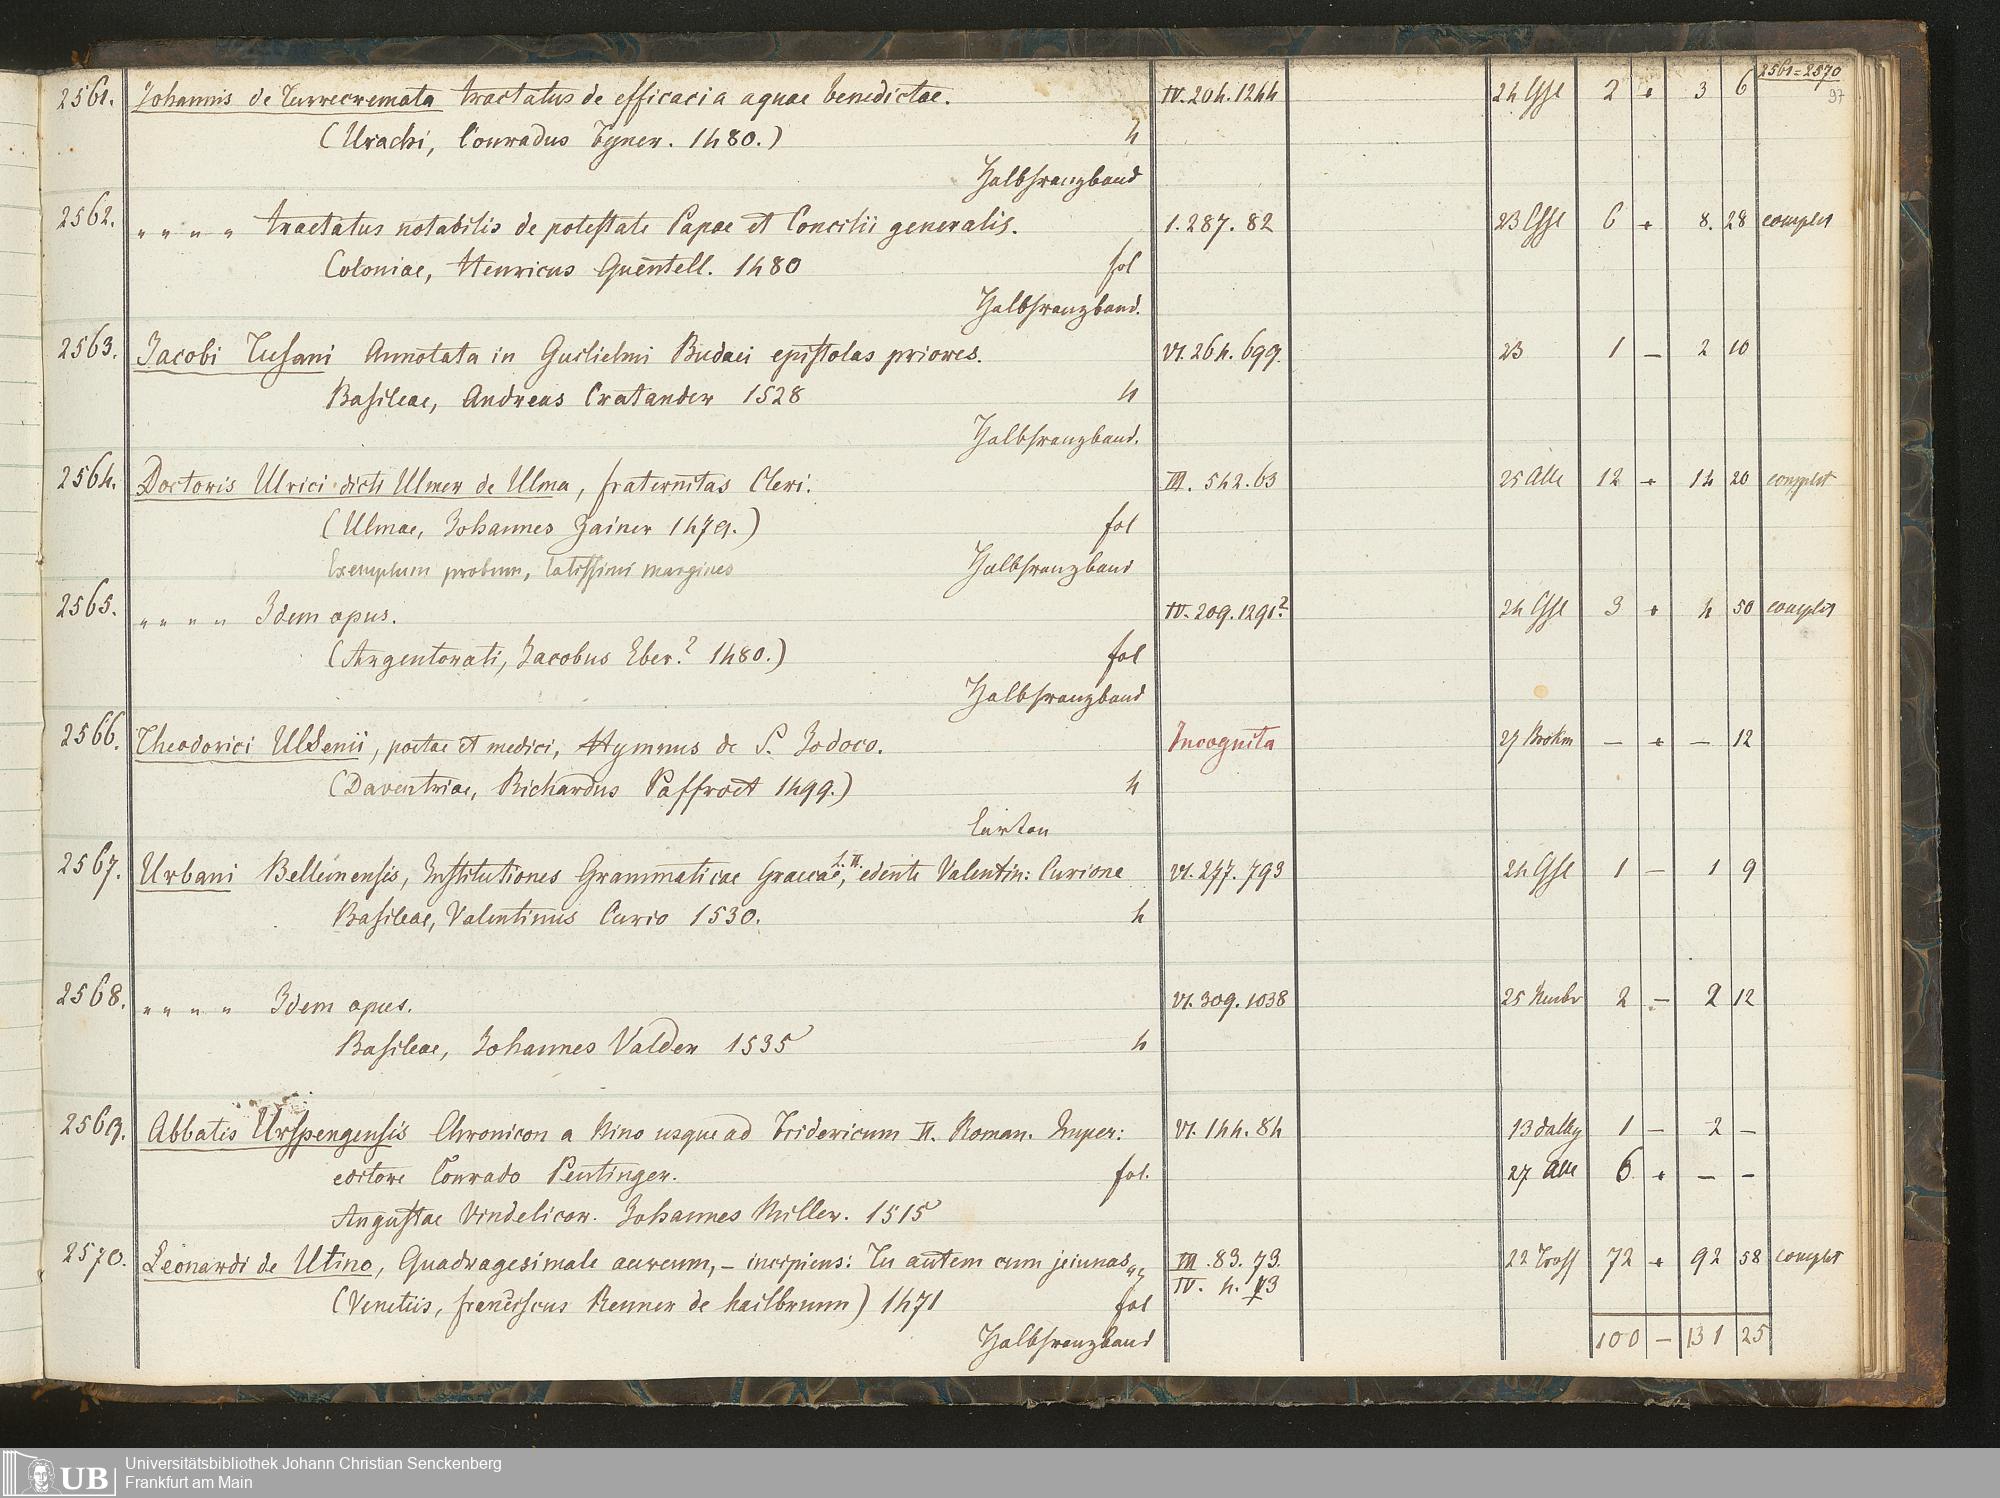 2561=2570
97
2561. Johannis de Turrecremata tractatus de efficacia aquae benedictae. IV. 204. 1244 24 2 + 3 6
(Urachi, Conradus Fyner. 1480.) 4
Halbfranzband
2562. " " " " tractatus notabilis de potestate Papae et Concilii generalis. I. 287. 82 23 6 + 8. 28 complet
Coloniae, Henricus Quentell. 1480 fol
Halbfranzband.
2563. Jacobi Tusani Annotata in Guilielmi Budaei epistolas priores. VI. 264. 699. 23 1 — 2 10
Basileae, Andreas Cratander 1528 4
Halbfranzband.
2564. Doctoris Ulrici dicti Ulmer de Ulma, fraternitas Cleri. III. 542. 63 25 Alle 12 + 14 20 complet
(Ulmae, Johannes Zainer 1479.) fol
Exemplum probum, latissimi margines Halbfranzband
2565. " " " " Idem opus. IV. 209. 1291? 24 3 + 4 50 complet
(Argentorati, Jacobus Eber? 1480.) fol
Halbfranzband
2566. Theodorici Ulsenii, poetae et medici, Hymnus de S. Jodoco. Incognita 27 — + — 12
(Daventriae, Richardus Paffroet 1499.) 4
Carton
2567. Urbani Bellunensis, Institutiones Grammaticae Graecae, L. II. edente Valentin: Curione VI. 277. 793 24 1 — 1 9
Basileae, Valentinus Curio 1530. 4
2568. " " " " Idem opus. VI. 309. 1038 25 2 — 2 12
Basileae, Johannes Valder 1535 4
2569. Abbatis Urspengensis Chronicon a Nino usque ad Fridericum II. Roman. Imper: VI. 144. 84 13 1 — 2 —
editore Conrado Peutinger. fol. 27 Alle 6 + — —
Augustae Vindelicor. Johannes Miller. 1515
2570. Leonardi de Utino, Quadragesimale aureum, – incipiens: Tu autem cum jeiunas „ III. 83. 73. 22 72 + 92 58 complet
IV. 4. 13
(Venetiis, franciscus Renner de hailbrunn) 1471 fol
Halbfranzband 100 — 131 25
UB
Universitätsbibliothek Johann Christian Senckenberg
Frankfurt am Main